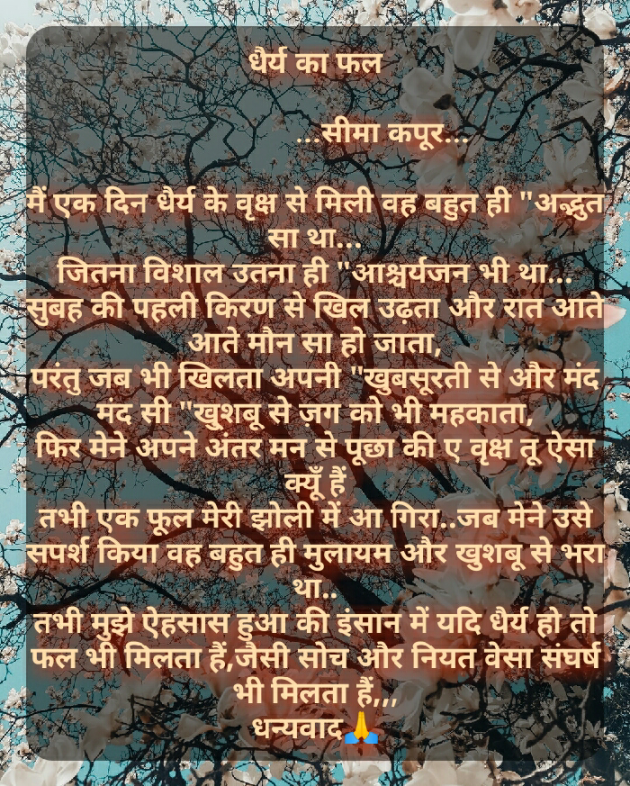 धैर्य का फल
...सीमा कपूर...
मैं एक दिन धैर्य के वृक्ष से मिली वह बहुत ही "अद्भुत
सा था...
जितना विशाल उतना ही "आश्चर्यजन भी था...
सुबह की पहली किरण से खिल उढ़ता और रात आते
आते मौन सा हो जाता,
परंतु जब भी खिलता अपनी "खुबसूरती से और मंद
मंद सी "खु्शबू से ज़ग को भी महकाता,
फिर मेने अपने अंतर मन से पूछा की ए वृक्ष तू ऐसा
क्यूँ हैं
तभी एक फूल मेरी झोली में आ गिरा..जब मेने उसे
सपर्श किया वह बहुत ही मुलायम और खुशबू से भरा
था..
तभी मुझे ऐहसास हुआ की इंसान में यदि धैर्य हो तो
फल भी मिलता हैं,जैसी सोच और नियत वेसा संघर्ष
भी मिलता हैं,,,
धन्यवाद🙏